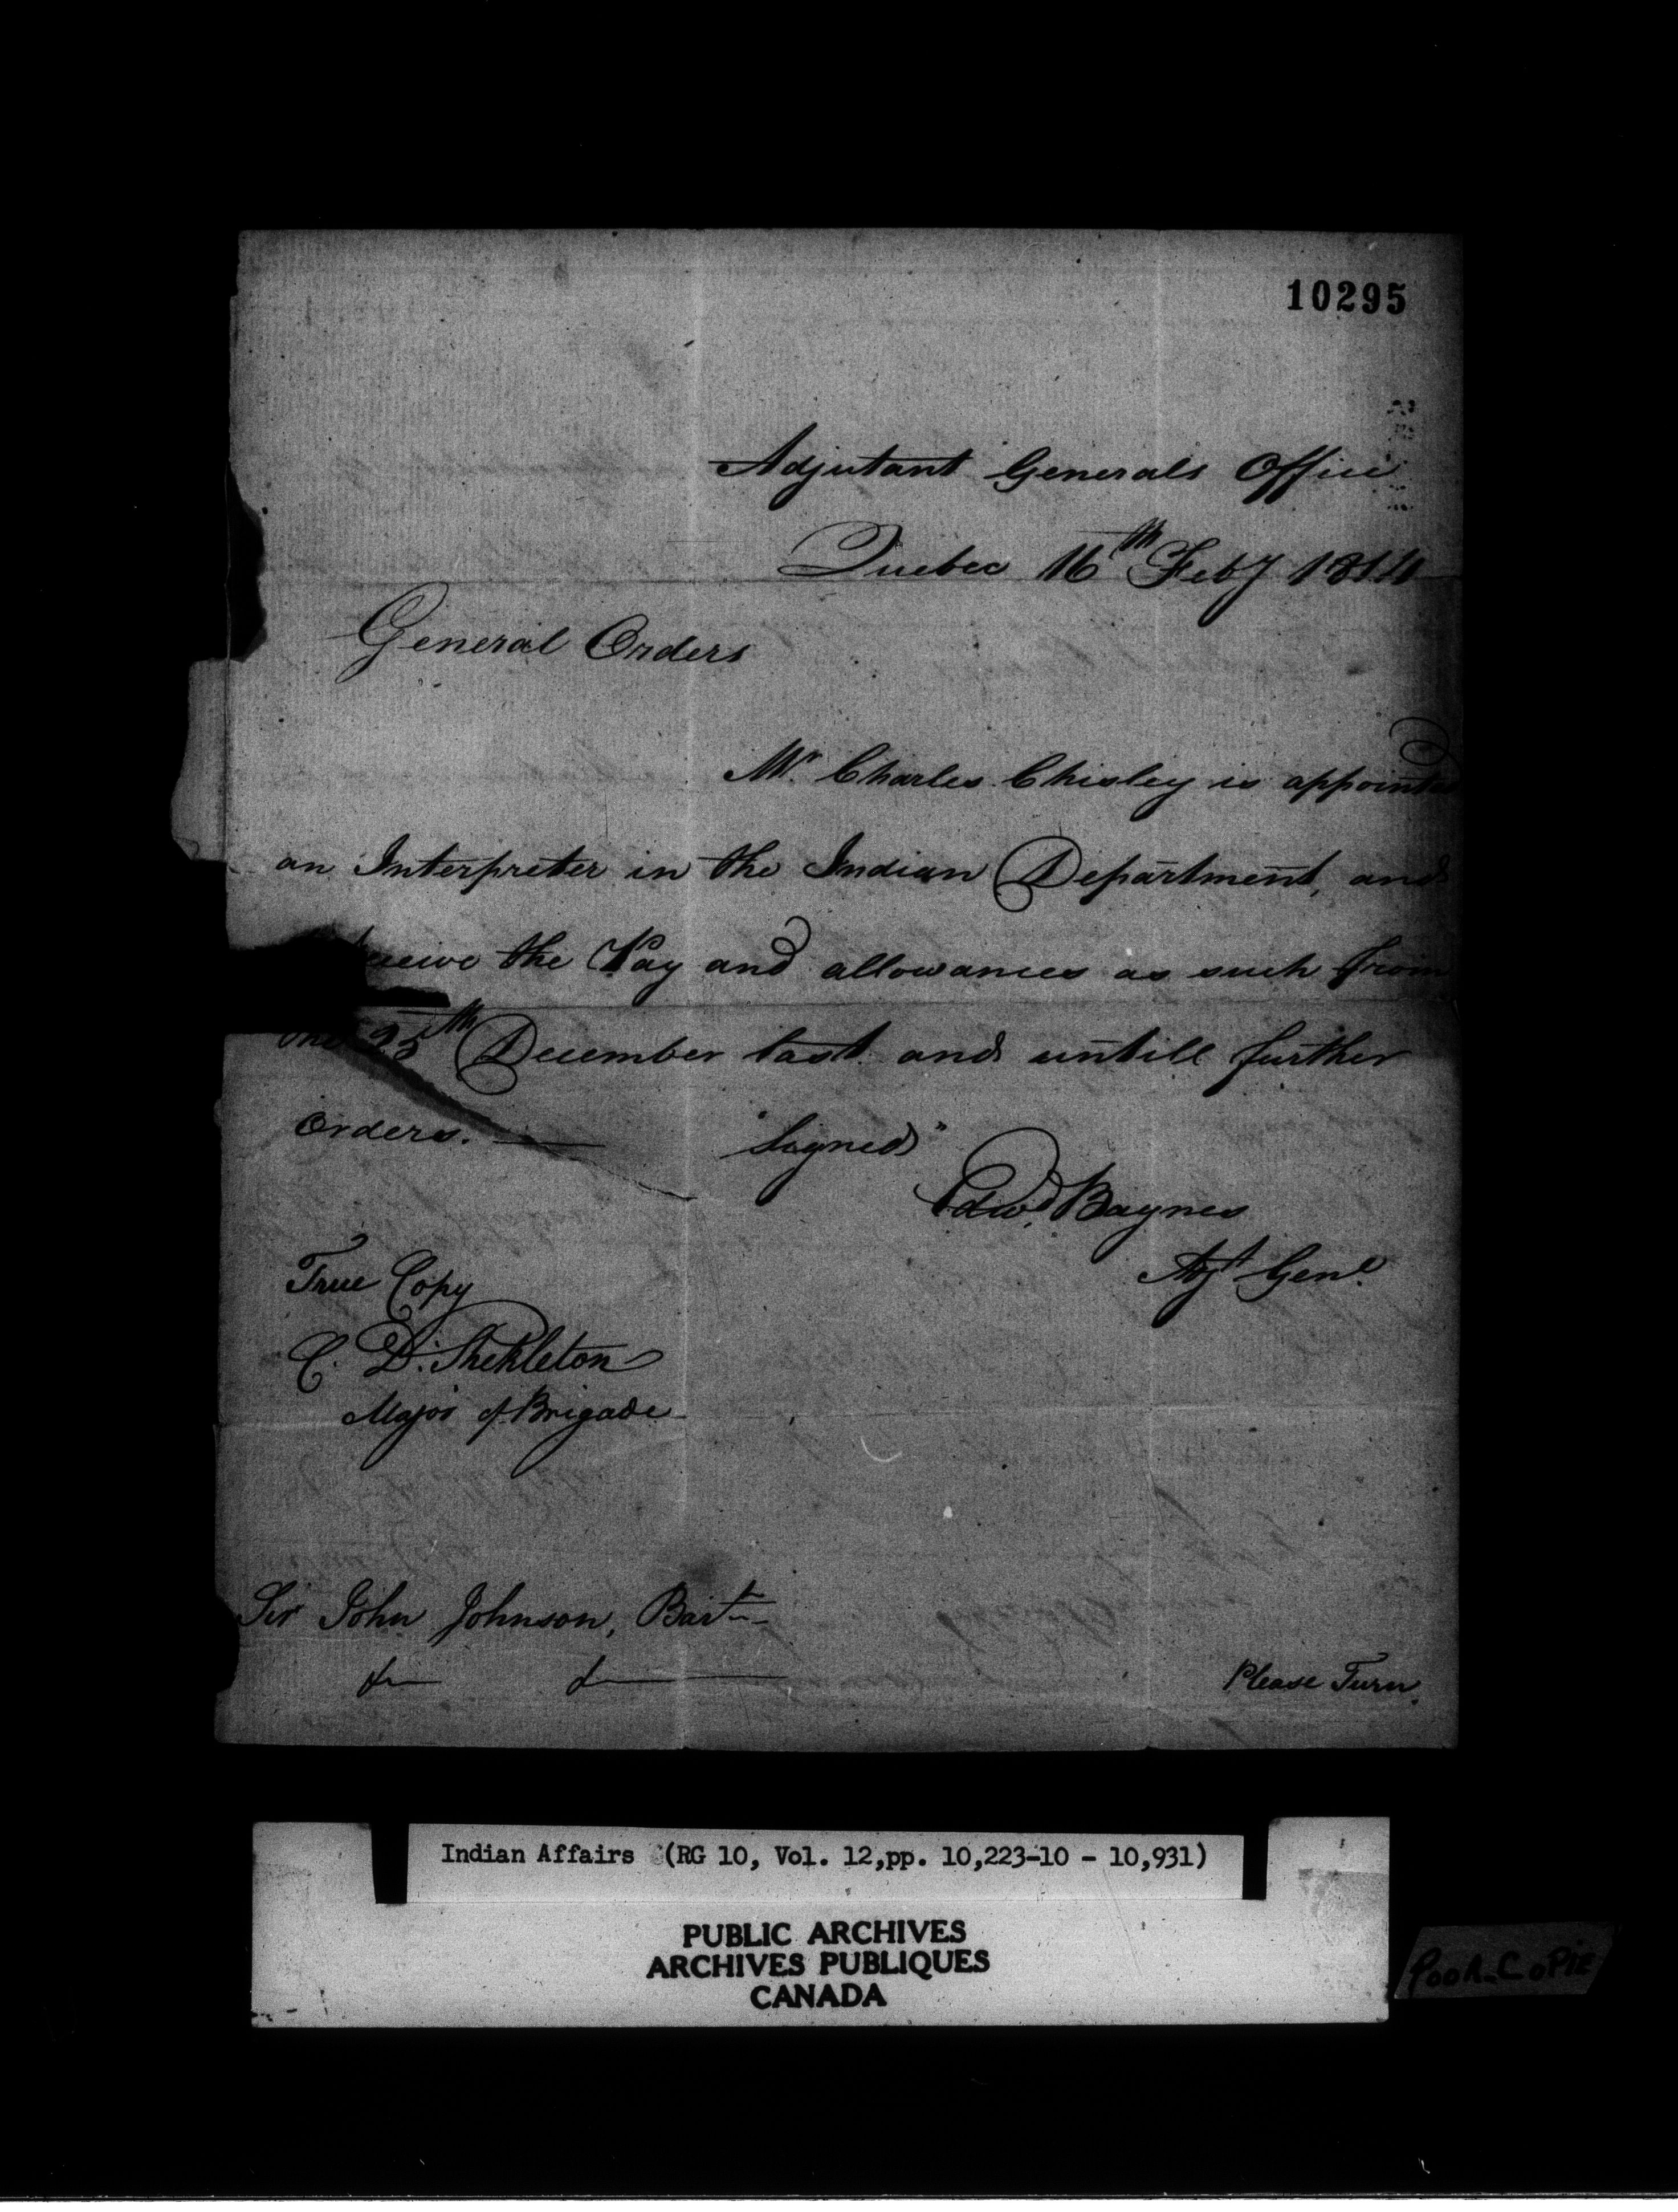 10295
Adjutant Generals Office
Quebec 16th Feby 1814
General Orders
Mr. Charles Chisley is appointed
an Interpreter in the Indian Department, and
receive the Pay and allowances as such from
the 25th December last and untill further
Orders. — "Signed"
Edwd. Baynes
Adjt Genl.
True Copy
C. D. Shekleton
Major of Brigade
Sir John Johnson, Bart
&c &c
Please Turn
Indian Affairs (RG 10, Vol. 12,pp. 10,223-10 - 10,931)
PUBLIC ARCHIVES
ARCHIVES PUBLIQUES
CANADA
POOR COPIE